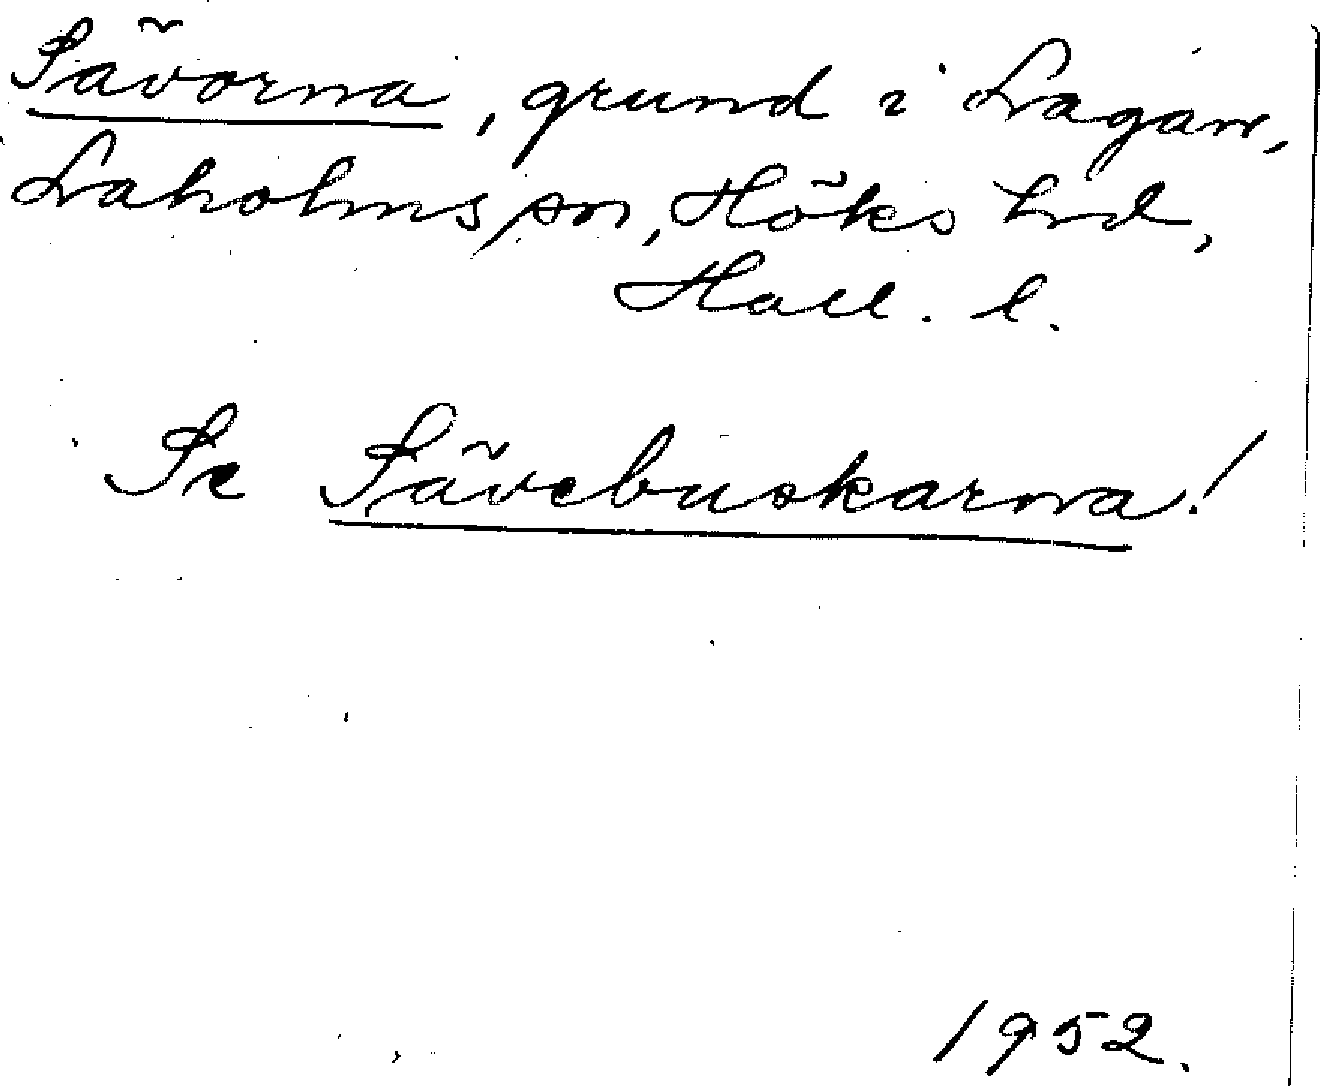 Sävorna, grund i Lagan,
Laholms sn, Höks hrd,
Hall. l.
Se Sävebuskarna!
1952.